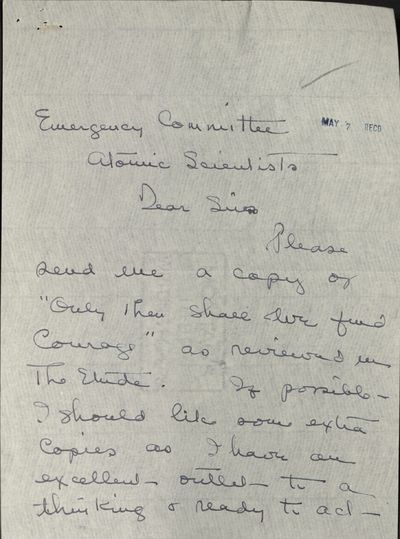 MAY 7 RECD
Emergency Committee
Atomic Scientists
Dear Sirs
Please
send me a copy of
"Only Then Shall We find
Courage" as reviewed in
The Etude. If possible-
I should like some extra
Copies as I have an
excellent outlet to a
thinking & ready to act-